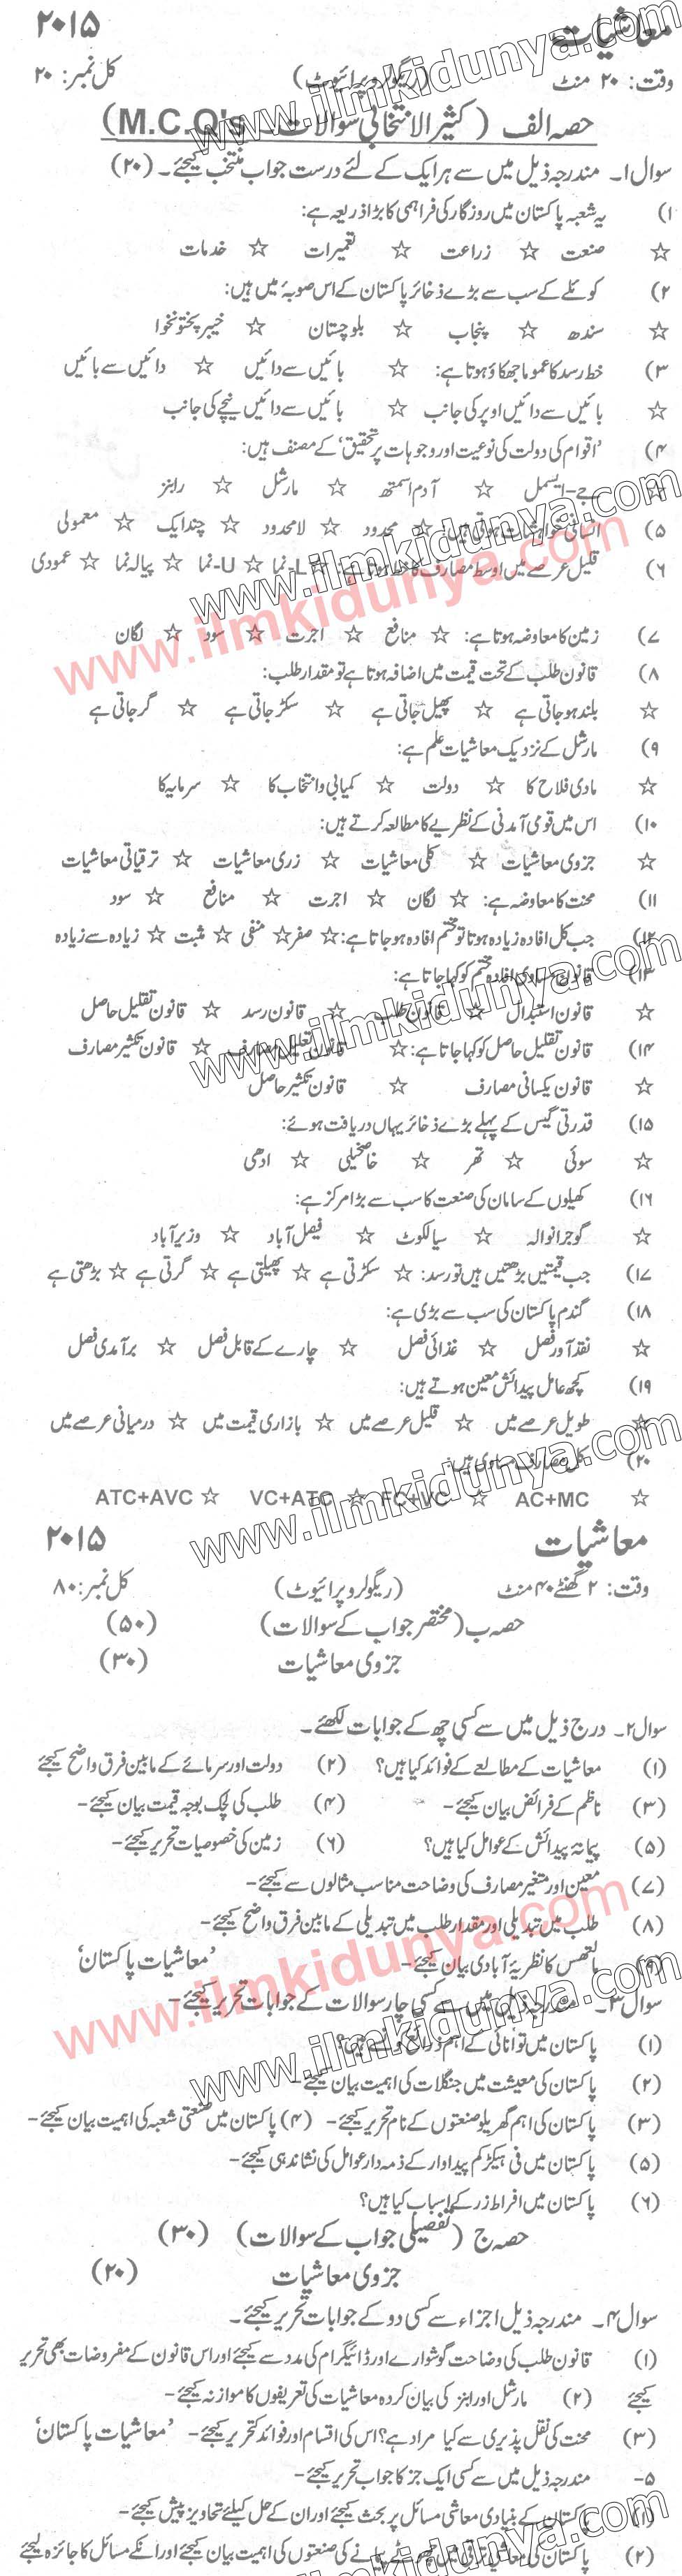 معاشیات ۲۰۱۵
وقت: ۲۰ منٹ (ریگولر و پرائیوٹ) کل نمبر: ۲۰
حصہ الف (کثیر الانتخابی سوالات M.C.Q's)
سوال ۱۔ مندرجہ ذیل میں سے ہر ایک کے لئے درست جواب منتخب کیجئے۔ (۲۰)
۱) یہ شعبہ پاکستان میں روزگار کی فراہمی کا بڑا ذریعہ ہے:
☆ صنعت ☆ زراعت ☆ تعمیرات ☆ خدمات
۲) کوئلے کے سب سے بڑے ذخائر پاکستان کے اس صوبہ میں ہیں:
☆ سندھ ☆ پنجاب ☆ بلوچستان ☆ خیبر پختونخوا
۳) خط رسد کا عموماً جھکاؤ ہوتا ہے: ☆ بائیں سے دائیں ☆ دائیں سے بائیں
☆ بائیں سے دائیں اوپر کی جانب ☆ بائیں سے دائیں نیچے کی جانب
۴) 'اقوام کی دولت کی نوعیت اور وجوہات پر تحقیق' کے مصنف ہیں:
☆ جے-ایسمل ☆ آدم اسمتھ ☆ مارشل ☆ رابنز
۵) انسانی خواہشات ہوتی ہیں: ☆ محدود ☆ لامحدود ☆ چند ایک ☆ معمولی
۶) قلیل عرصے میں اوسط مصارف کا خط ہوتا ہے: ☆ L-نما ☆ U-نما ☆ پیالہ نما ☆ عمودی
۷) زمین کا معاوضہ ہوتا ہے: ☆ منافع ☆ اجرت ☆ سود ☆ لگان
۸) قانون طلب کے تحت قیمت میں اضافہ ہوتا ہے تو مقدار طلب:
☆ بلند ہو جاتی ہے ☆ پھیل جاتی ہے ☆ سکڑ جاتی ہے ☆ گر جاتی ہے
۹) مارشل کے نزدیک معاشیات علم ہے:
☆ مادی فلاح کا ☆ دولت ☆ کمیابی و انتخاب کا ☆ سرمایہ کا
۱۰) اس میں قومی آمدنی کے نظریے کا مطالعہ کرتے ہیں:
☆ جزوی معاشیات ☆ کلی معاشیات ☆ زری معاشیات ☆ ترقیاتی معاشیات
۱۱) محنت کا معاوضہ ہے: ☆ لگان ☆ اجرت ☆ منافع ☆ سود
۱۲) جب کل افادہ زیادہ ہوتا تو مختتم افادہ ہو جاتا ہے: ☆ صفر ☆ منفی ☆ مثبت ☆ زیادہ سے زیادہ
۱۳) قانون مساوی افادہ مختتم کو کہا جاتا ہے:
☆ قانون استبدال ☆ قانون طلب ☆ قانون رسد ☆ قانون تقلیل حاصل
۱۴) قانون تقلیل حاصل کو کہا جاتا ہے: ☆ قانون تقلیل مصارف ☆ قانون تکثیر مصارف
☆ قانون یکسانی مصارف ☆ قانون تکثیر حاصل
۱۵) قدرتی گیس کے پہلے بڑے ذخائر یہاں دریافت ہوئے:
☆ سوئی ☆ تھر ☆ خاصخیلی ☆ ادھی
۱۶) کھیلوں کے سامان کی صنعت کا سب سے بڑا مرکز ہے:
☆ گوجرانوالہ ☆ سیالکوٹ ☆ فیصل آباد ☆ وزیر آباد
۱۷) جب قیمتیں بڑھتیں ہیں تو رسد: ☆ سکڑتی ہے ☆ پھیلتی ہے ☆ گرتی ہے ☆ بڑھتی ہے
۱۸) گندم پاکستان کی سب سے بڑی ہے:
☆ نقد آور فصل ☆ غذائی فصل ☆ چارے کے قابل فصل ☆ برآمدی فصل
۱۹) کچھ عامل پیدائش معین ہوتے ہیں:
☆ طویل عرصے میں ☆ قلیل عرصے میں ☆ بازاری قیمت میں ☆ درمیانی عرصے میں
۲۰) کل مصارف مساوی ہیں:
☆ AC+MC ☆ FC+VC ☆ VC+ATC ☆ ATC+AVC
معاشیات ۲۰۱۵
وقت: ۲ گھنٹے ۴۰ منٹ (ریگولر و پرائیوٹ) کل نمبر: ۸۰
حصہ ب (مختصر جواب کے سوالات) (۵۰)
جزوی معاشیات (۳۰)
سوال ۲۔ درج ذیل میں سے کسی چھ کے جوابات لکھئے۔
(۱) معاشیات کے مطالعے کے فوائد کیا ہیں؟ (۲) دولت اور سرمائے کے مابین فرق واضح کیجئے
(۳) ناظم کے فرائض بیان کیجئے- (۴) طلب کی لچک بوجہ قیمت بیان کیجئے-
(۵) پیمانہ پیدائش کے عوامل کیا ہیں؟ (۶) زمین کی خصوصیات تحریر کیجئے-
(۷) معین اور متغیر مصارف کی وضاحت مناسب مثالوں سے کیجئے-
(۸) طلب میں تبدیلی اور مقدار طلب میں تبدیلی کے مابین فرق واضح کیجئے-
(۹) مالتھس کا نظریہ آبادی بیان کیجئے- 'معاشیات پاکستان'
سوال ۳۔ مندرجہ ذیل میں سے کسی چار سوالات کے جوابات تحریر کیجئے-
(۱) پاکستان میں توانائی کے اہم ذرائع کونسے ہیں؟
(۲) پاکستان کی معیشت میں جنگلات کی اہمیت بیان کیجئے-
(۳) پاکستان کی اہم گھریلو صنعتوں کے نام تحریر کیجئے- (۴) پاکستان میں صنعتی شعبہ کی اہمیت بیان کیجئے-
(۵) پاکستان میں فی ہیکڑ کم پیداوار کے ذمہ دار عوامل کی نشاندہی کیجئے-
(۶) پاکستان میں افراط زر کے اسباب کیا ہیں؟
حصہ ج (تفصیلی جواب کے سوالات) (۳۰)
جزوی معاشیات (۲۰)
سوال ۴۔ مندرجہ ذیل اجزاء سے کسی دو کے جوابات تحریر کیجئے۔
(۱) قانون طلب کی وضاحت گوشوارے اور ڈائیگرام کی مدد سے کیجئے اور اس قانون کے مفروضات بھی تحریر
کیجئے (۲) مارشل اور رابنز کی بیان کردہ معاشیات کی تعریفوں کا موازنہ کیجئے-
(۳) محنت کی نقل پذیری سے کیا مراد ہے؟ اس کی اقسام اور فوائد تحریر کیجئے- 'معاشیات پاکستان'
۵- مندرجہ ذیل میں سے کسی ایک جز کا جواب تحریر کیجئے-
(۱) پاکستان کے بنیادی معاشی مسائل پر بحث کیجئے اور ان کے حل کیلئے تجاویز پیش کیجئے-
(۲) پاکستان کی معاشی ترقی میں چھوٹے پیمانے کی صنعتوں کی اہمیت بیان کیجئے اور انکے مسائل کا جائزہ لیجئے
www.ilmkidunya.com